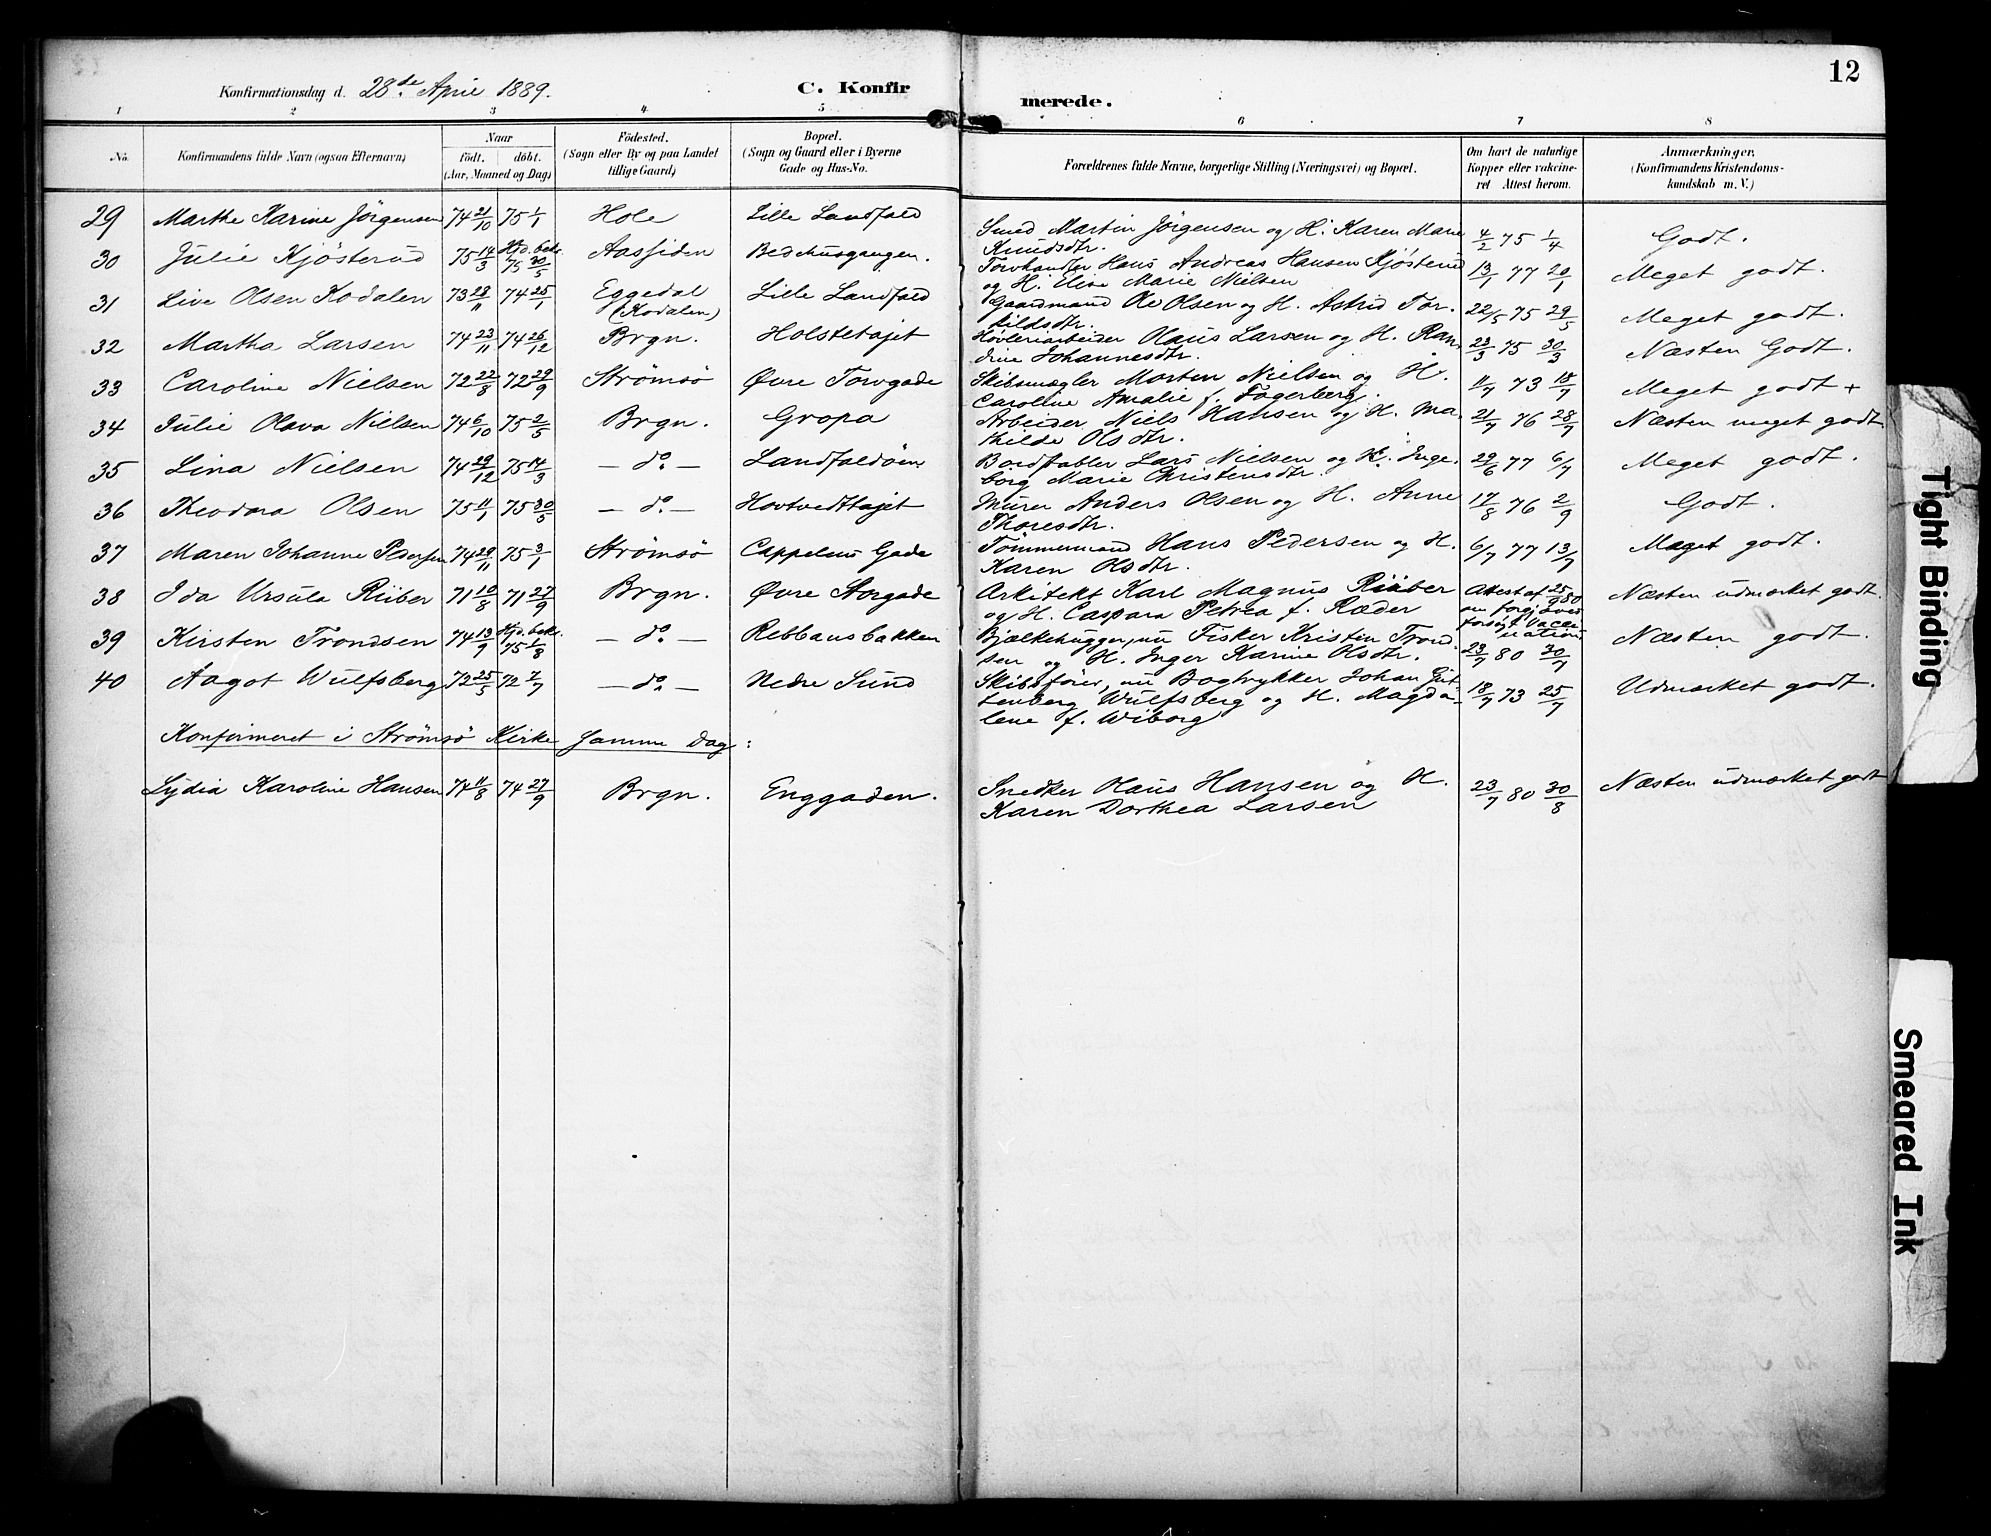 12
Konfirmationsdag d. 28de April 1889. C. Konfirmerede.
1 2 3 4 5 6 7 8
No. Konfirmandens fulde Navn (ogsaa Efternavn) Naar født. døbt. (Aar, Maaned og Dag) Födested. (Sogn eller By og paa Landet tillige Gaard) Bopæl. (Sogn og Gaard eller i Byerne Gade og Hus-No. Forældrenes fulde Navne, borgerlige Stilling (Næringsvei) og Bopæl. Om havt de naturlige Kopper eller vakcineret Attest herom. Anmærkninger, (Konfirmandens Kristendomskundskab m. V.)
29 Marthe Karine Jörgensen 74 21/10 75 1/1 Hole Lille Landfald Smed Martin Jörgensen og H. Karen Marie Knudsdtr. 4/2 75 1/4 Godt.
30 Julie Kjösterud 75 14/3 Hjd. bekr. 75 30/5 Aassiden Bedehusgangen. Torvhandler Hans Andreas Hansen Kjösterud og H. Elise Marie Nielsen 13/1 77 20/1 Meget godt.
31 Live Olsen Kodalen 73 28/11 74 25/1 Eggedal (Kodalen) Lille Landfald Gaardmand Ole Olsen og H. Astrid Torkildsdtr. 22/5 75 29/5 Meget godt.
32 Martha Larsen 74 23/11 74 26/12 Brgn. Holstetajet Høvleriarbeider Hans Larsen og H. Randine Johannesdtr. 23/3 75 30/3 Næsten Godt.
33 Caroline Nielsen 72 22/8 72 29/9 Strömsö Øvre Torvgade Skibsmægler Morten Nielsen og H. Caroline Amalie f. Fagerberg. 11/7 73 18/7 Meget godt +
34 Julie Olava Nielsen 74 6/10 75 2/5 Brgn. Gropa Arbeider Niels Hansen og H. Mathilde Olsdtr. 21/7 76 28/7 Næsten meget godt
35 Lina Nielsen 74 29/12 75 14/3 — do — Landfaldöen Bordstabler Lars Nielsen og H. Ingeborg Marie Christensdtr. 29/6 77 6/7 Meget godt.
36 Theodora Olsen 75 11/1 75 30/5 — do — Hovtvedttajet Murer Anders Olsen og H. Anne Thoresdtr. 17/8 76 2/9 Godt.
37 Maren Johanne Pedersen 74 29/11 75 3/1 Strömsö Cappelens Gade Tömmermand Hans Pedersen og H. Karen Olsdtr. 6/7 77 13/7 Meget godt.
38 Ida Ursula Riiber 71 10/8 71 27/9 Brgn. Øvre Storgade Arkitekt Karl Magnus Riiber og H. Caspara Petrea f. Ræder Attest af 25/9 80 om forgj. forsögt Vaccination Næsten udmærket godt.
39 Kirsten Trondsen 74 13/9 Hjd. bekr. 75 1/8 — do — Rebbansbakken Bjælkehugger, nu Fisker Kristen Trondsen og H. Inger Karine Olsdtr. 23/7 80 30/7 Næsten godt.
40 Aagot Wulfsberg 72 25/5 72 7/7 — do — Nedre Sund Skibsfører, nu Bogtrykker Johan Guttenberg Wulfsberg og H. Magdalene f. Wiborg 18/7 73 25/7 Udmærket godt.
Konfirmeret i Strömsö Kirke samme Dag:
Lydia Karoline Hansen 74 11/8 74 27/9 Brgn. Enggaden. Snedker Hans Hansen og H. Karen Dorthea Larsen 23/7 80 30/8 Næsten udmærket godt
Tight Binding
Smeared Ink